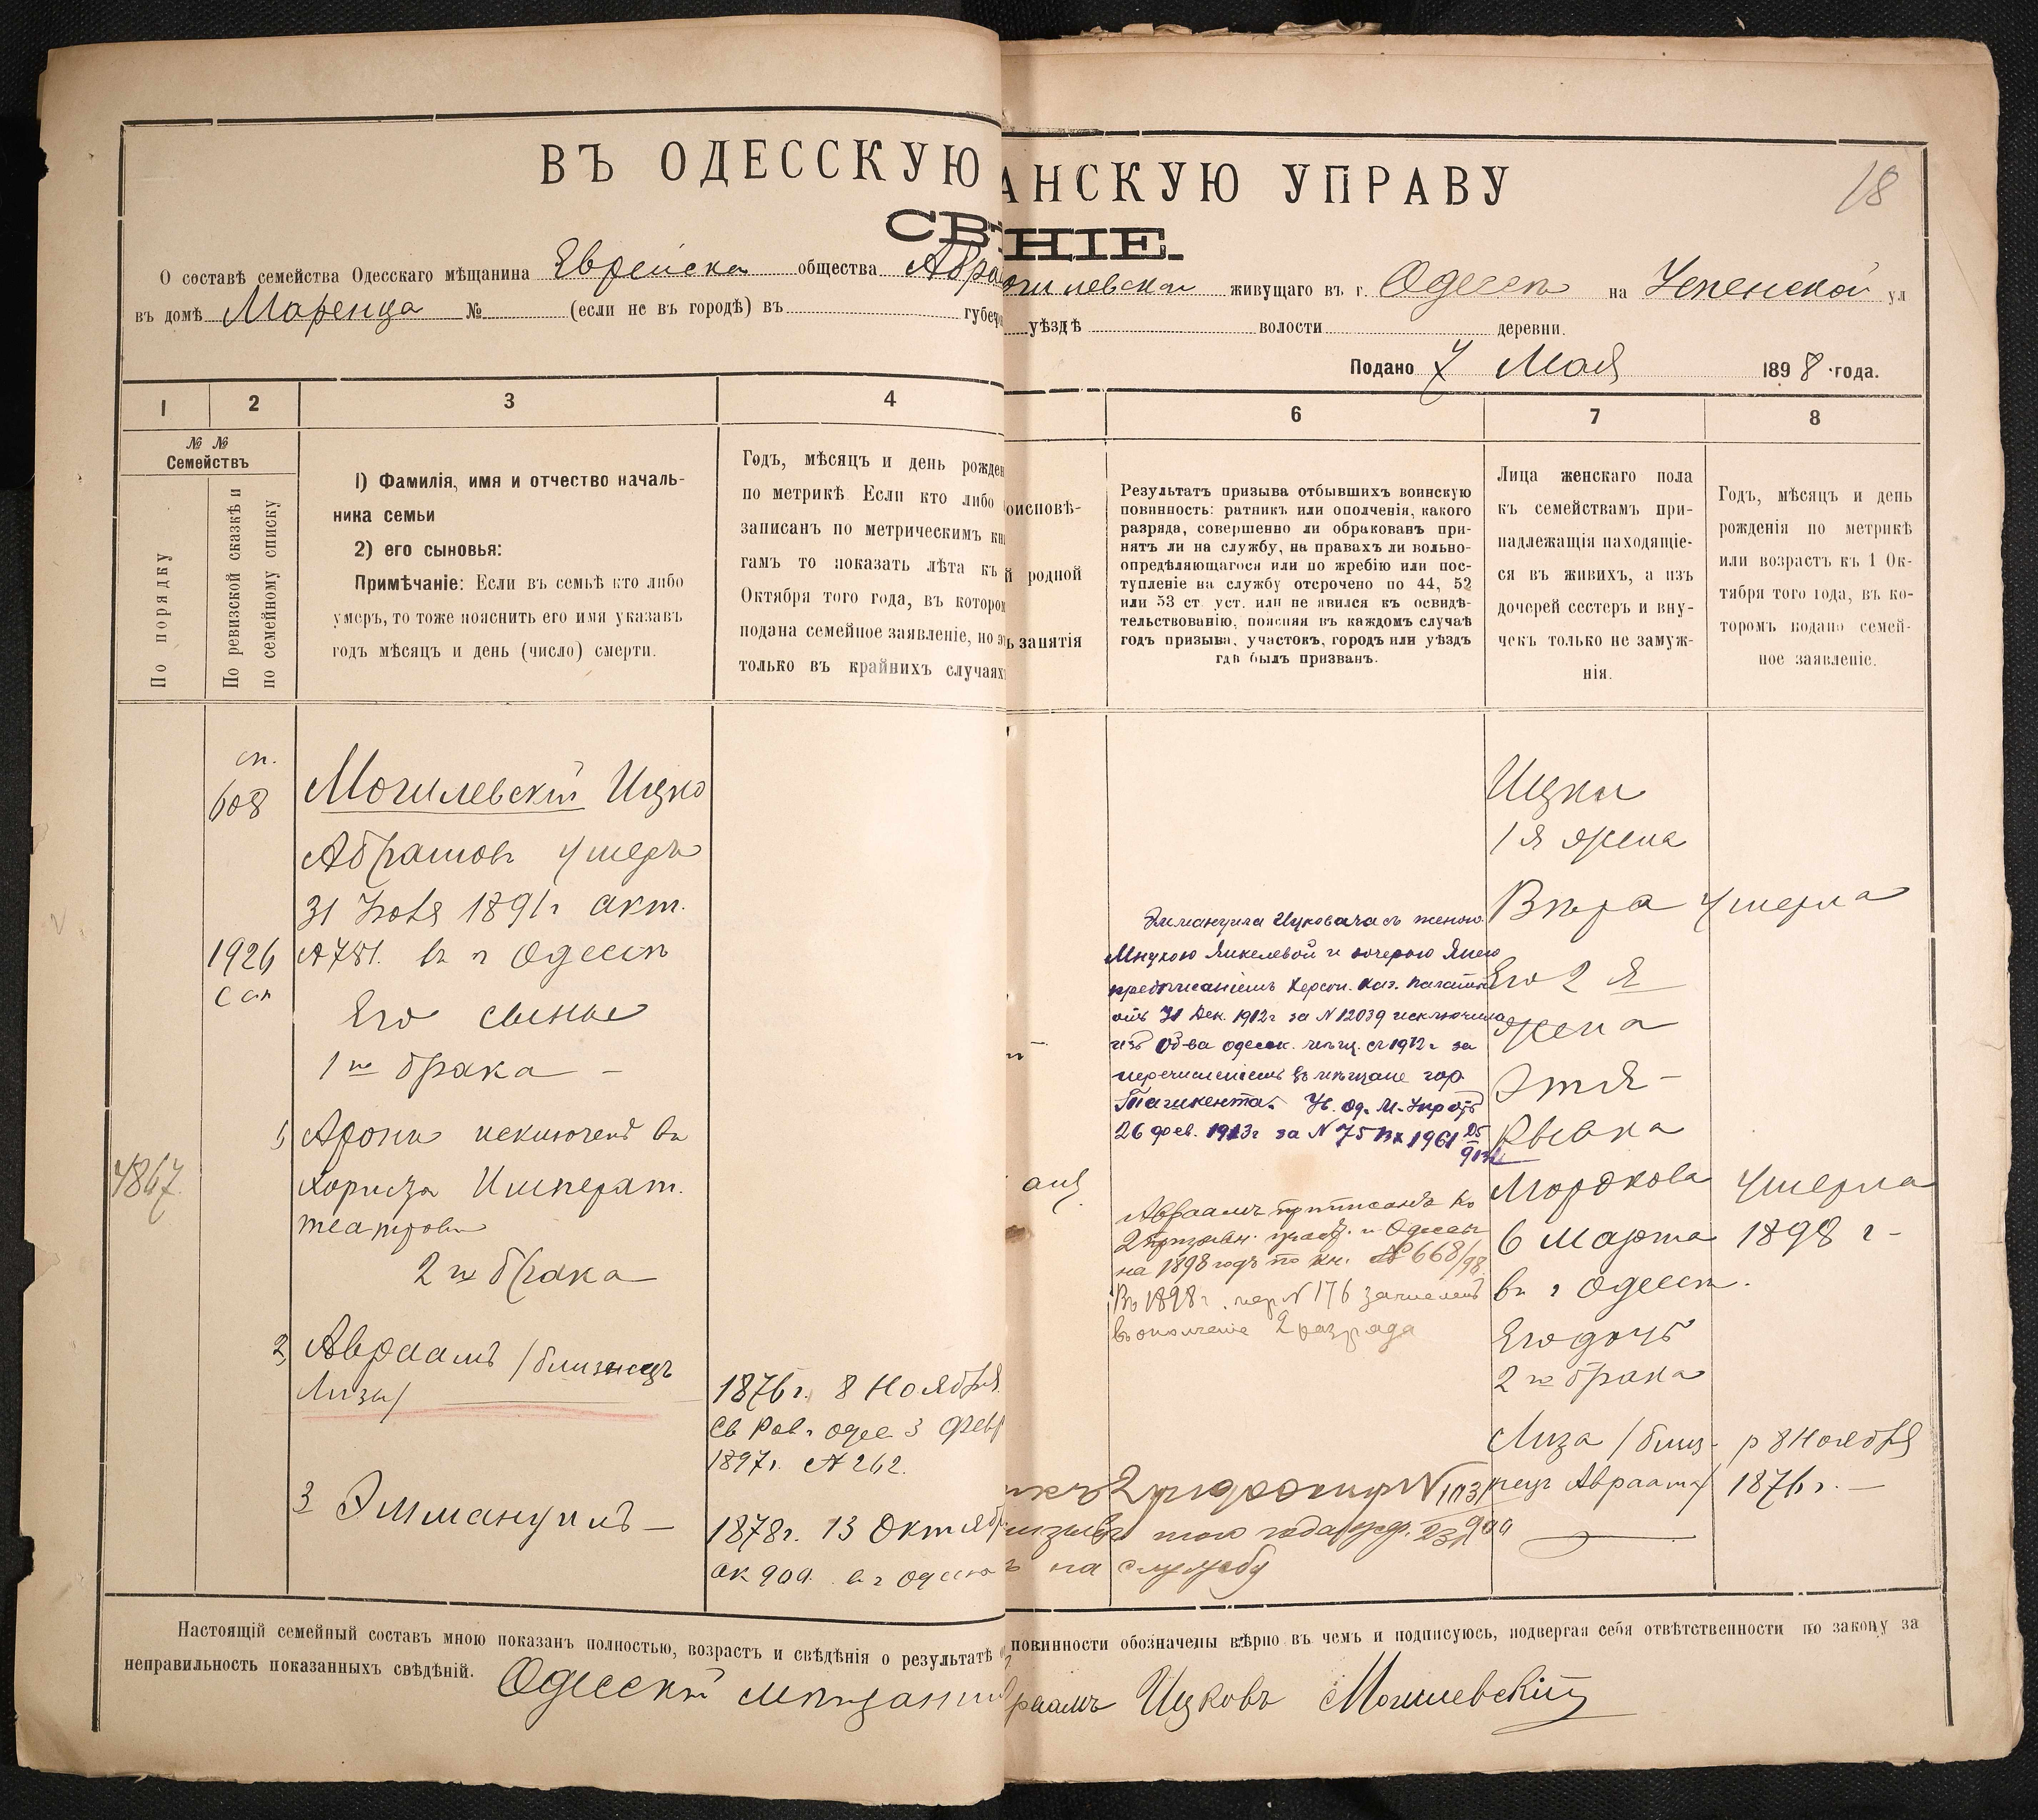 ВЪ ОДЕССКУЮ
АНСКУЮ УПРАВУ
18
СВ
НІЕ.
О составѣ семейства Одесскаго мѣщанина Еврейска общества Абра
огилевскаг живущаго въ г. Одессѣ на Успенской ул
въ домѣ Маренца № (если не въ городѣ) въ губер
уѣздѣ волости деревни.
Подано 7 Мая 1898 года.
1 2 3 4
6 7 8
№ №
Семействъ
По порядку
По ревизской сказкѣ и
по семейному списку
1) Фамилія, имя и отчество началь-
ника семьи
2) его сыновья:
Примѣчаніе: Если въ семьѣ кто либо
умеръ, то тоже пояснить его имя указавъ
годъ мѣсяцъ и день (число) смерти.
Годъ, мѣсяцъ и день рожден
по метрикѣ Если кто либо
записанъ по метрическимъ кн
гамъ то показать лѣта къ
Октября того года, въ котором
подана семейное заявленіе, но э
только въ крайнихъ случаях
оисповѣ-
й родной
ь занятія
Результатъ призыва отбывшихъ воинскую
повинность: ратникъ или ополченія, какого
разряда, совершенно ли обракованъ при-
нятъ ли на службу, на правахъ ли вольно-
опредѣляющагося или по жребію или пос-
тупленіе на службу отсрочено по 44, 52
или 53 ст уст. или не явился къ освидѣ-
тельствованію, поясняя въ каждомъ случаѣ
годъ призыва, участокъ, городъ или уѣздъ
гдѣ былъ призванъ.
Лица женскаго пола
къ семействамъ при-
надлежащія находящіе-
ся въ живихъ, а изъ
дочерей сестеръ и вну-
чекъ только не замуж-
нія.
Годъ, мѣсяцъ и день
рожденія по метрикѣ
или возрастъ къ 1 Ок-
тября того года, въ ко-
торомъ подано семей-
ное заявленіе.
сп.
608
1926
4867
Могилевскій Ицко
Абрамовъ умеръ
31 Іюля 1891 г акт.
№781. въ г Одессѣ
Его сыновья
1го брака –
1, Аронъ исключенъ въ
хориста Императ.
театровъ
2го брака
2, Авраамъ /близнецъ
Лизы/
3 Эммануилъ —
1876 г. 8 Ноября
Св Рав. одес 3 Февр
1897 г. № 262.
1878 г. 13 Октяб
ак 909. въ г Одессѣ
Эммануила Ицковича съ женою
Мнухою Янкелевой и дочерью
предписаніемъ Херсон. Каз. Палаты
отъ 31 Дек. 1912 г за № 12039 исключила
изъ об-ва одесск. мѣщ. съ 1912 г за
перечисленіемъ въ мѣщане гор
Ташкента. Ув. Од. М. Упр отъ
26 фев. 1913 г за № 75 Вх 1961
Авраамъ приписанъ ко
2 призывн. участ. г Одессы
на 1898 годъ по кн. № 668/98.
Въ 1898 г. № 176 зачисленъ
въ ополченіе 2 разряда
того года
на службу
Ицки
1я жена
Вѣра умерла
Его 2я
жена
Этя-
Рывка
Мордкова умерла
6 Марта 1898 г –
въ г Одессѣ.
Его дочь
2го брака
Лиза /близ- р 8 Ноября
нецъ Авраама/ 1876 г. —
Настоящій семейный составъ мною показанъ полностью, возрастъ и свѣдѣнія о результатѣ
повинности обозначены вѣрно въ чемъ и подписуюсь, подвергая себя отвѣтственности по закону за
неправильность показанныхъ свѣдѣній.
Одесскій мѣщанин
раамъ Ицковъ Могилевскій